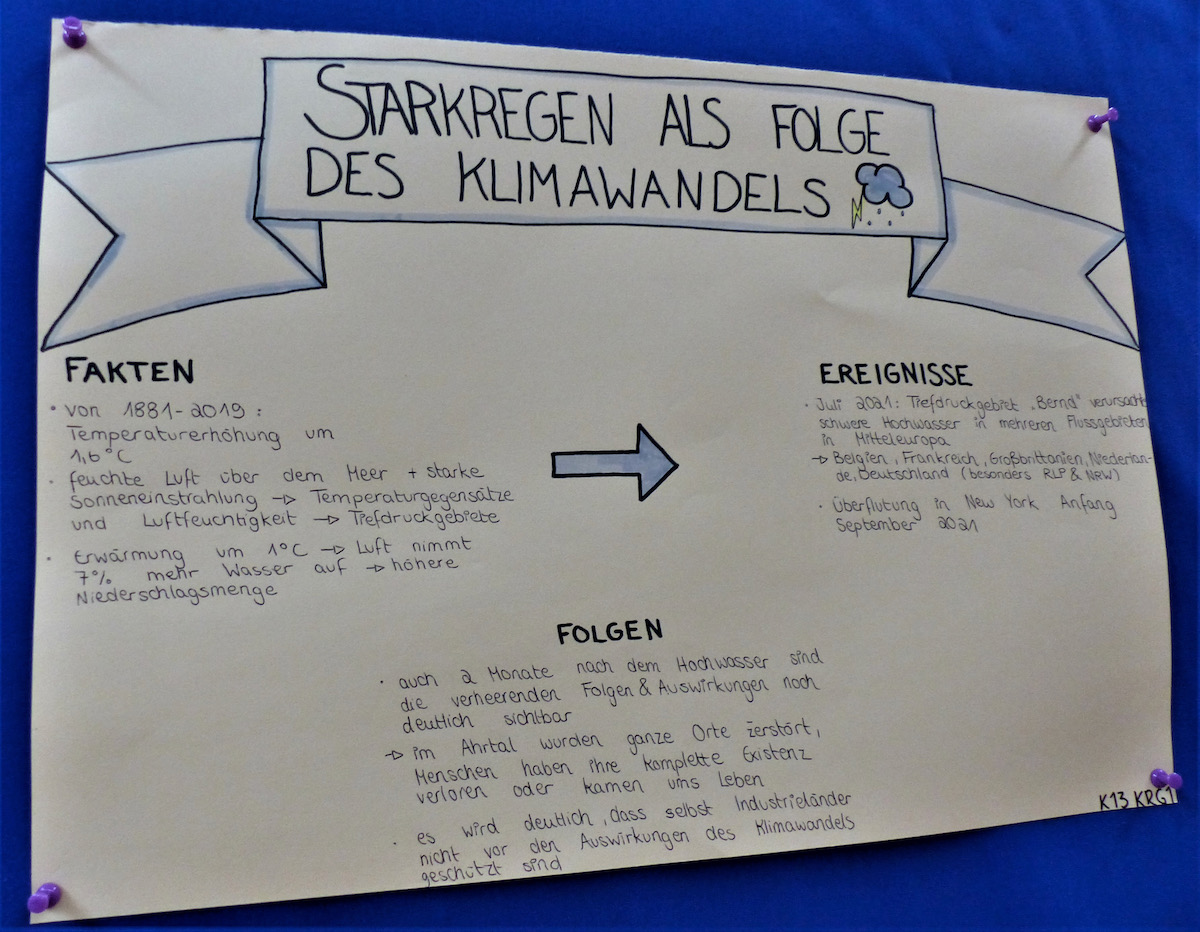 STARKREGEN ALS FOLGE
DES KLIMAWANDELS
FAKTEN
• von 1881-2019:
Temperaturerhöhung um
1,6°C
• feuchte Luft über dem Meer + starke
Sonneneinstrahlung → Temperaturgegensätze
und Luftfeuchtigkeit → Tiefdruckgebiete
• Erwärmung um 1°C → Luft nimmt
7% mehr Wasser auf → höhere
Niederschlagsmenge
EREIGNISSE
• Juli 2021: Tiefdruckgebiet "Bernd" verursacht
schwere Hochwasser in mehreren Flussgebieten
in Mitteleuropa
→ Belgien, Frankreich, Großbrittanien, Niederlan-
de, Deutschland (besonders RLP & NRW)
• Überflutung in New York Anfang
September 2021
FOLGEN
• auch 2 Monate nach dem Hochwasser sind
die verheerenden Folgen & Auswirkungen noch
deutlich sichtbar
→ im Ahrtal wurden ganze Orte zerstört,
Menschen haben ihre komplette Existenz
verloren oder kamen ums Leben
• es wird deutlich, dass selbst Industrieländer
nicht vor den Auswirkungen des Klimawandels
geschützt sind
K13 KRG1